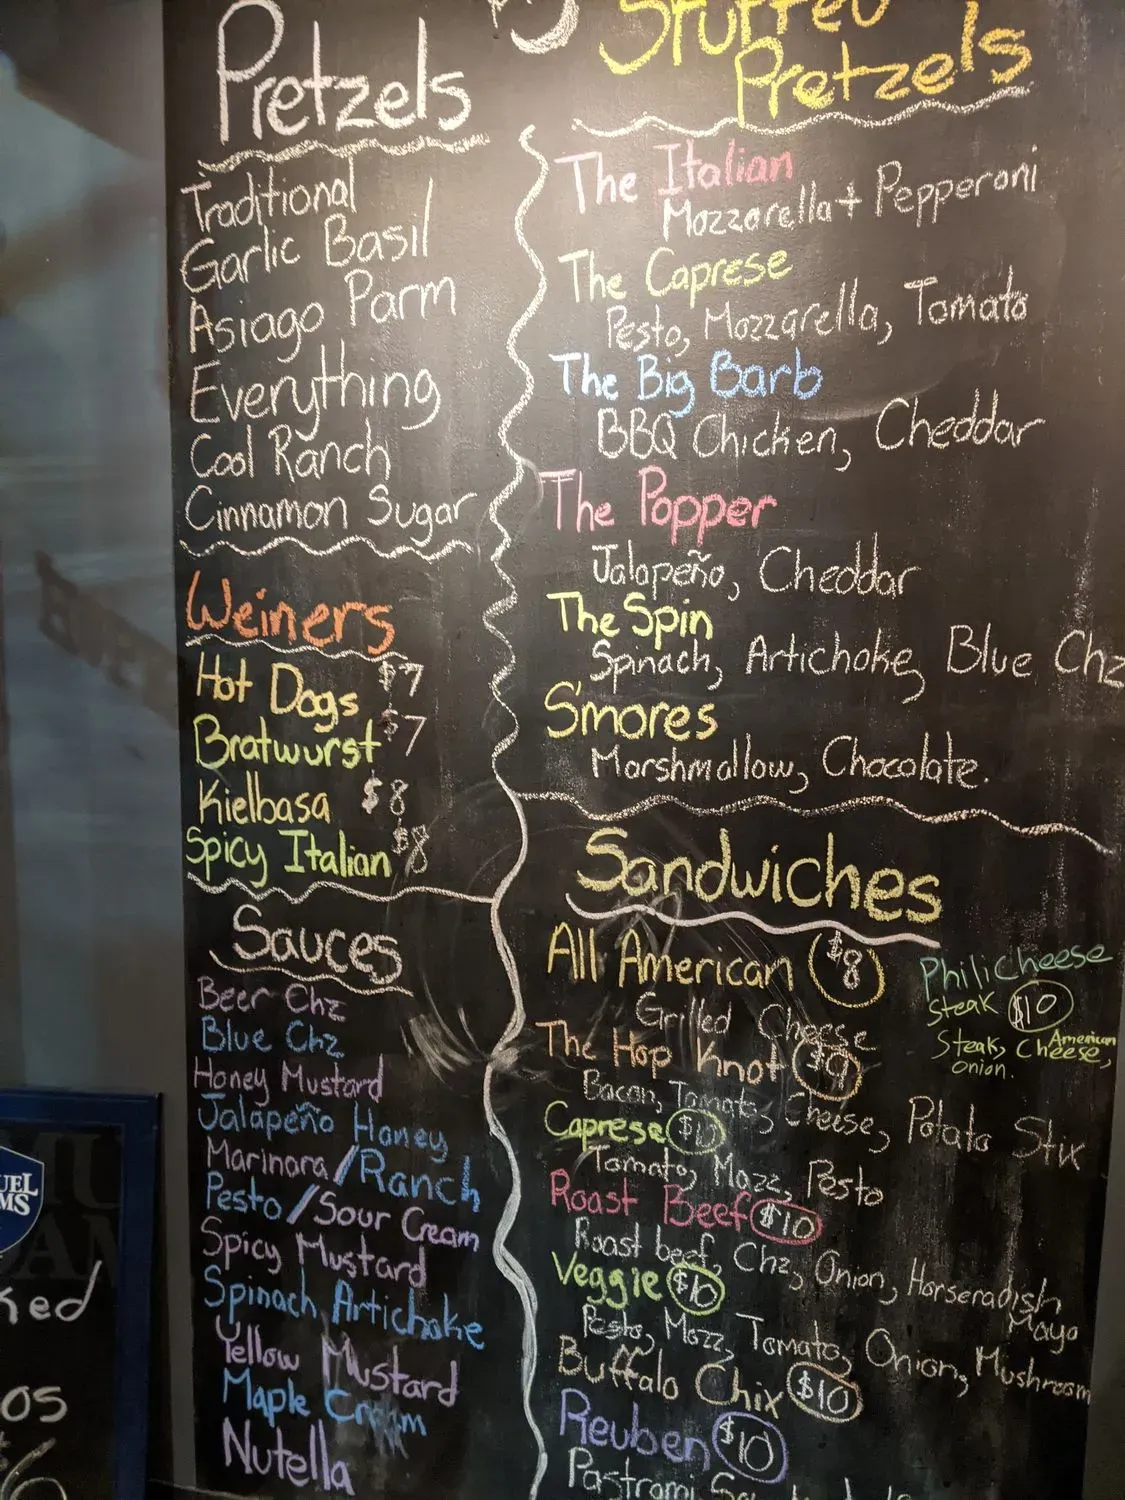 Pretzels
Traditional
Garlic Basil
Asiago Parm
Everything
Cool Ranch
Cinnamon Sugar
Weiners
Hot Dogs $7
Bratwurst $7
Kielbasa $8
Spicy Italian $8
Sauces
Beer Chz
Blue Chz
Honey Mustard
Jalapeño Honey
Marinara/Ranch
Pesto/Sour Cream
Spicy Mustard
Spinach Artichoke
Yellow Mustard
Maple Cream
Nutella
Stuffed
Pretzels
The Italian
Mozzarella + Pepperoni
The Caprese
Pesto, Mozzarella, Tomato
The Big Barb
BBQ Chicken, Cheddar
The Popper
Jalapeño, Cheddar
The Spin
Spinach, Artichoke, Blue Chz
S'mores
Marshmallow, Chocolate.
Sandwiches
All American $8
Grilled Cheese
The Hop Knot $9
Bacon, Tomato, Cheese, Potato Stix
Caprese
Tomato, Mozz, Pesto
Roast Beef $10
Roast beef, Chz, Onion, Horseradish
Mayo
Veggie $10
Pesto, Mozz, Tomato, Onion, Mushroom
Buffalo Chix $10
Reuben $10
Pastrami
Phili Cheese
Steak $10
Steak, American
Cheese,
onion.